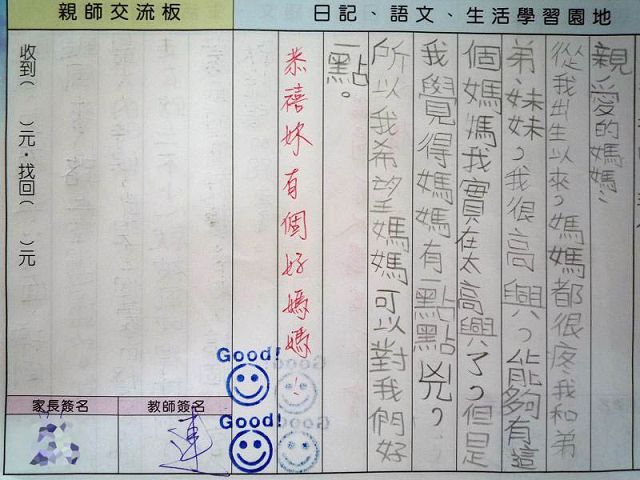 日記、語文、生活學習園地
親愛的媽媽：
從我出生以來，媽媽都很疼我和弟
弟、妹妹，我很高興，能夠有這
個媽媽我實在太高興了，但是
我覺得媽媽有一點點兇，
所以我希望媽媽可以對我們好
一點。
恭禧妳有個好媽媽
Good!
Good!
親師交流板
收到（　）元，找回（　）元
教師簽名
連
家長簽名